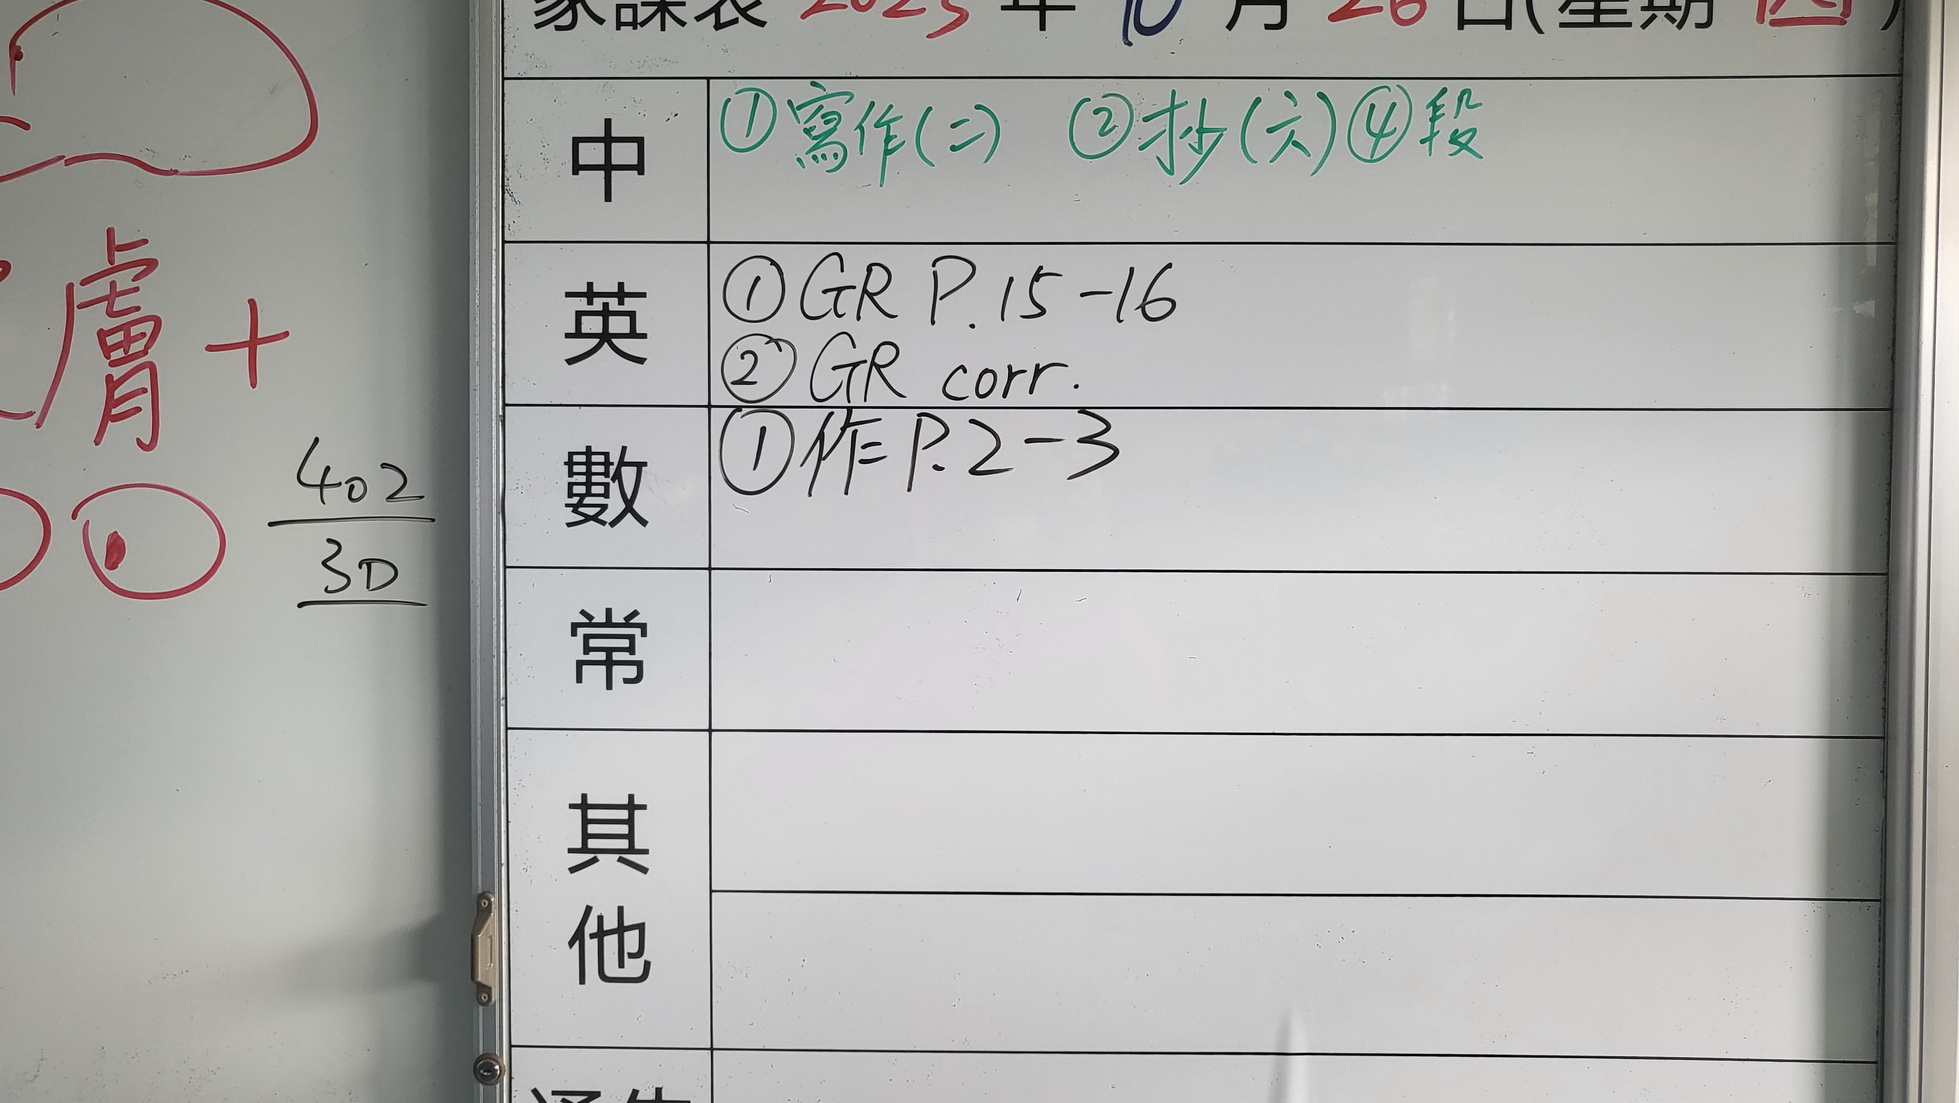 家課表 2023 年 10 月 26 日(星期 四)
中 ①寫作(二) ②抄(六)④段
英 ①GR P.15-16
②GR corr.
數 ①作P.2-3
常
其他
膚+
402
3D